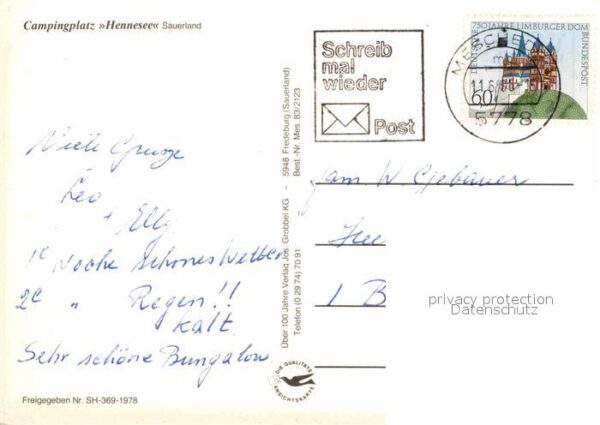 Campingplatz »Hennesee« Sauerland
Viele Grüsse
Leo
+ Elly
1e Woche schönes Wetter
2e " Regen!!
kalt.
Sehr schöne Bungalow.
Freigegeben Nr. SH-369-1978
Über 100 Jahre Verlag Jos. Grobbel KG - 5948 Fredeburg (Sauerland)
Telefon (0 29 74) 70 91 Best.-Nr. Mes 83/2123
DIE QUALITÄTS
ANSICHTSKARTE
Schreib
mal
wieder
Post
750 JAHRE LIMBURGER DOM
DEUTSCHE BUNDESPOST
60
MESCHEDE
5778
fam W Gebauer
1 B
privacy protection
Datenschutz